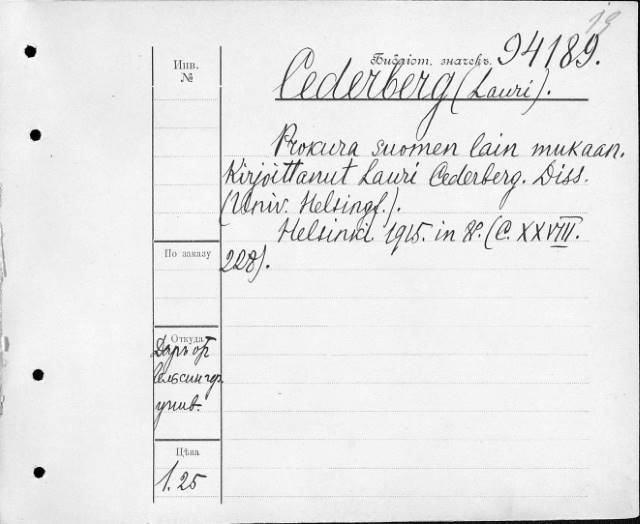 19
Библіот. значекъ. 94189.
Инв.
№
Cederberg (Lauri).
Prokura suomen lain mukaan.
Kirjoittanut Lauri Cederberg. Diss.
(Univ. Helsingf.).
Helsinki 1915. in 8º. (C. XXVIII.
228).
По заказу
Откуда
Даръ от
Гельсингф.
унив.
Цѣна
1.25